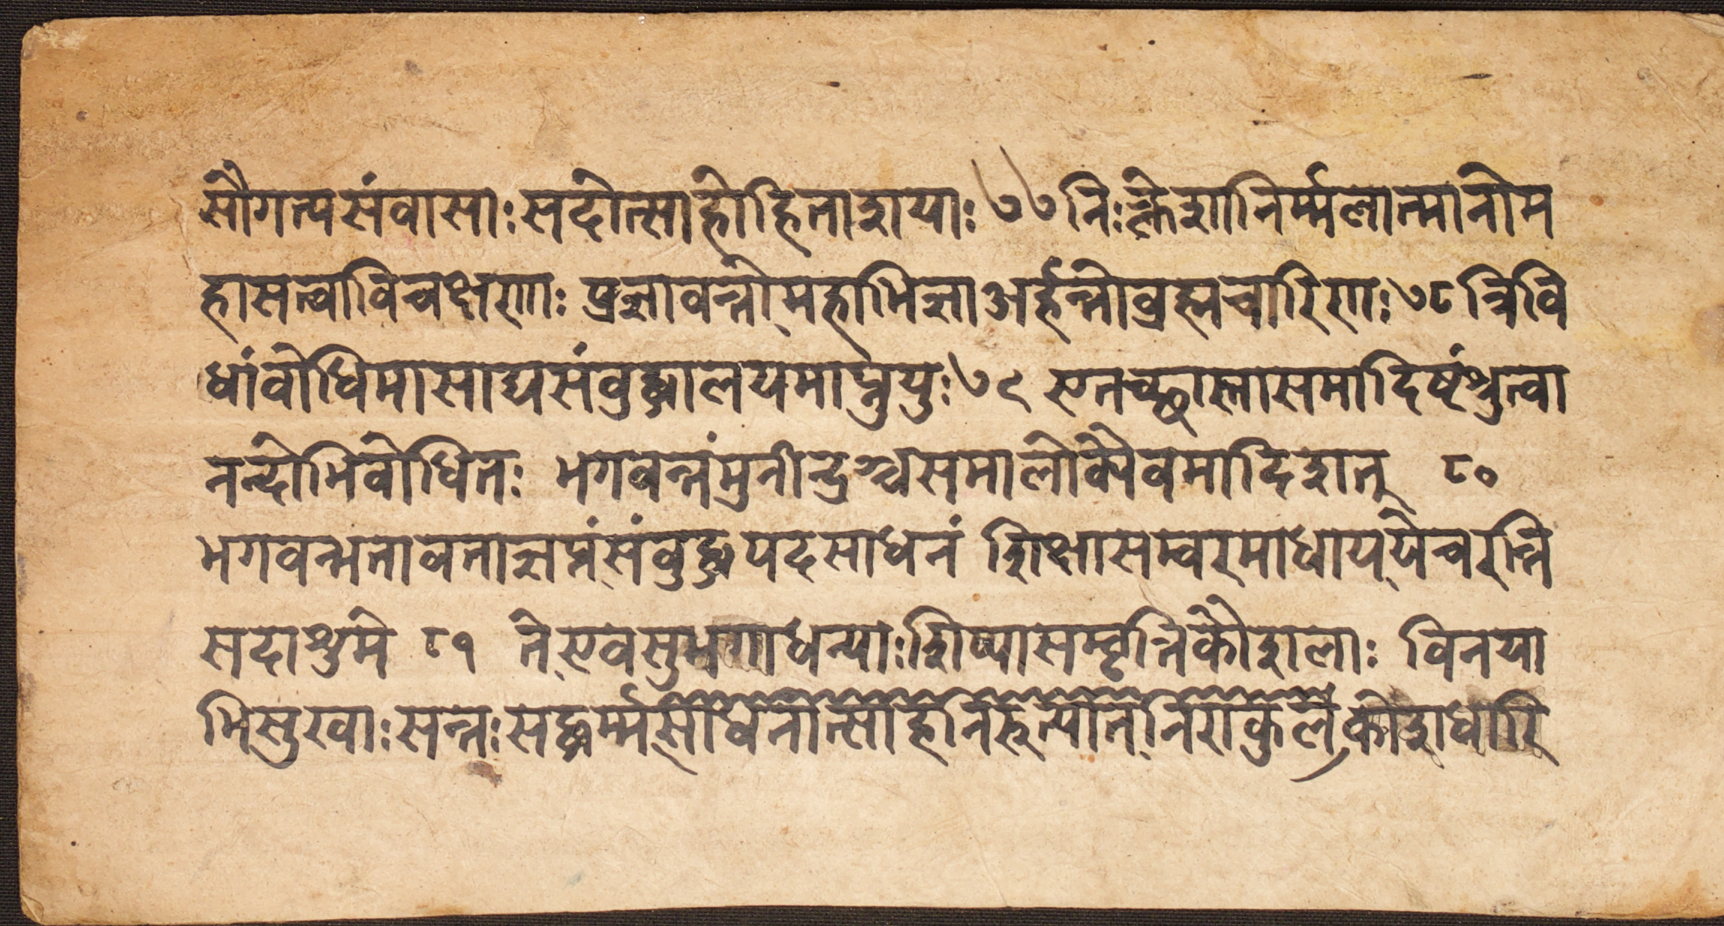 सौगत्यसंवासाः सदोत्साहोहिताशयाः ७७ निःक्लेशानिर्म्मलात्मानोम
हासत्वाविचक्षणाः प्रज्ञावन्तोमहाभिज्ञाअर्हन्तोब्रह्मचारिणः ७८ त्रिवि
धांवोधिमासाद्यसंवुद्धालयमाप्नुयुः ७९ एतच्छास्त्रासमादिष्टंश्रुत्वा
नन्दोभिवोधितः भगवन्तंमुनीन्द्रञ्चसमालोक्यैवमादिशत् ८०
भगवन्भतावताज्ञप्तंसंवुद्धपदसाधनं शिक्षासम्वरमाधाययेचरन्ति
सदाशुभे ८१ तेएवसुभगाधन्याःशिष्यासम्वृत्तिकौशलाः विनया
भिमुखाः सन्तः सद्धर्म्म कोशधारि